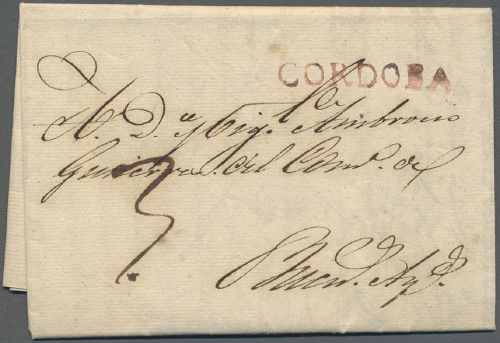 CORDOBA
A. D. Mig.l Ambrosio
Gutierrez del Com.o de
3
Buen.s Ay.s